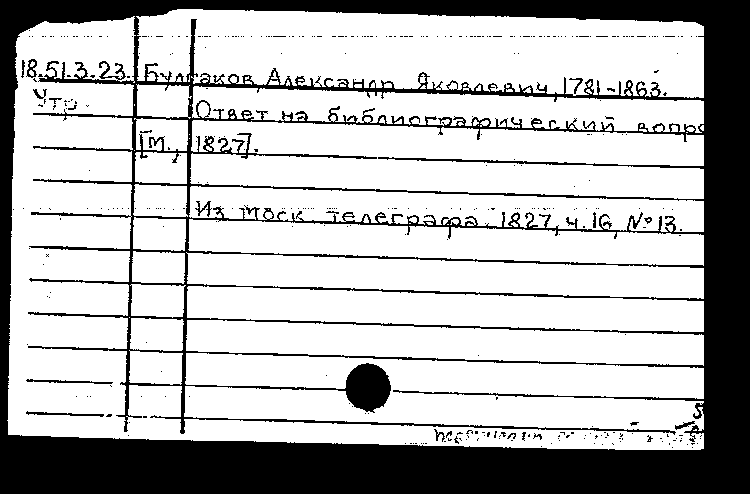 18.51.3.23. Булгаков, Александр Яковлевич, 1781-1863.
Утр. Ответ на библиографический вопро
[М., 1827].
Из Моск. телеграфа. 1827, ч. 16, № 13.